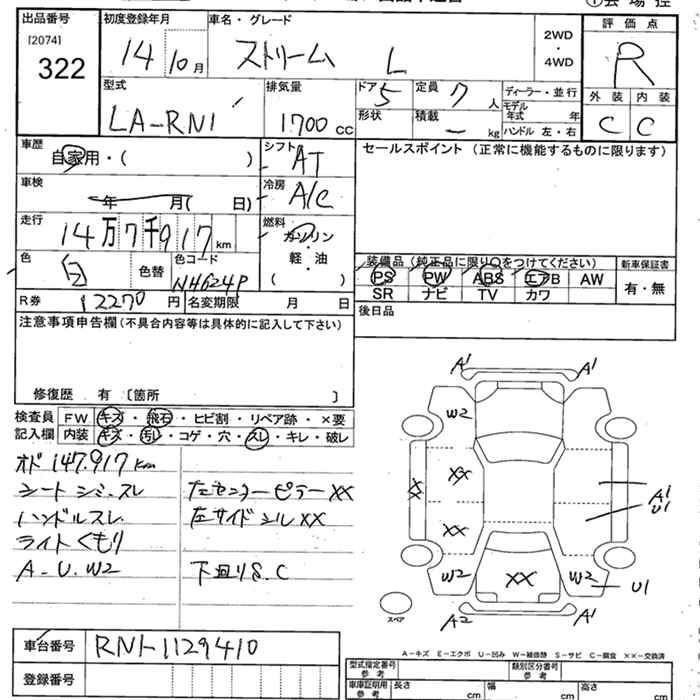 出品番号
[2074]
322
初度登録年月
14 10月
車名・グレード
ストリーム L
2WD
・
4WD
評価点
R
外装 内装
C C
型式
LA-RN1
排気量
1700cc
ドア 5
形状
定員 7人
積載 - kg
ディーラー・並行
モデル
年式 年
ハンドル 左・右
車歴
自家用・( )
シフト
AT
セールスポイント(正常に機能するものに限ります)
車検
年 月( 日)
冷房
A/C
走行
14万7千917km
燃料
ガソリン
・
軽・油
( )
色
白
色替
色コード
NH624P
装備品(純正品に限り○をつけてください)
PS PW ABS エアB AW
SR ナビ TV カワ
新車保証書
有・無
R券
12270円
名変期限 月 日
後日品
注意事項申告欄(不具合内容等は具体的に記入して下さい)
修復歴 有〔箇所 〕
検査員 FW キズ・飛石・ヒビ割・リペア跡・×要
記入欄 内装 キズ・汚レ・コゲ・穴・スレ・キレ・破レ
オド 147.917km
シート シミ.スレ
ハンドルスレ
ライトくもり
A-U.W2
左センターピラーXX
左サイドシルXX
下回りS.C
A1 A1
W2
XX
XX
XX
A1
U1
W2 XX W2 U1
A2 A1
スペア
A-キズ E-エクボ U-凹み W-補修跡 S-サビ C-腐食 ××-交換済
車台番号
RN1-1129410
登録番号
型式指定番号
参考
類別区分番号
参考
車庫証明用
参考
長さ cm
幅 cm
高さ cm